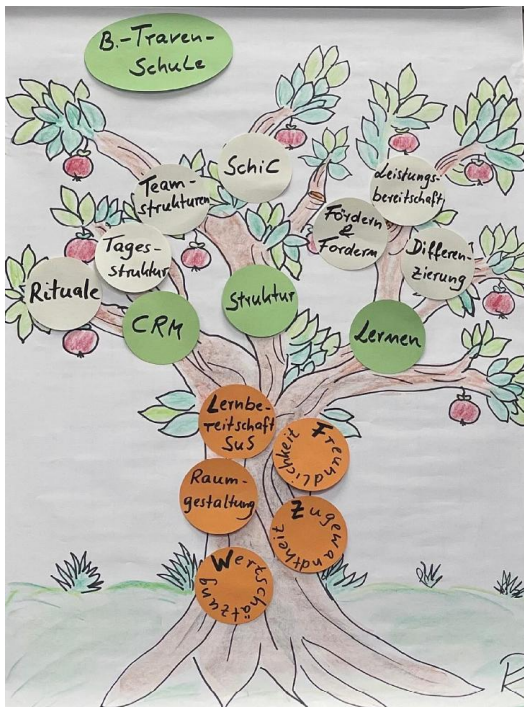 B.-Traven-
Schule
SchiC
Team-
strukturen
Leistungs-
bereitschaft
Fördern
&
Fordern
Tages-
struktur
Differen-
zierung
Rituale
CRM
Struktur
Lernen
Lernbe-
reitschaft
SuS
Freundlichkeit
Raum-
gestaltung
Zugewandtheit
Wertschätzung